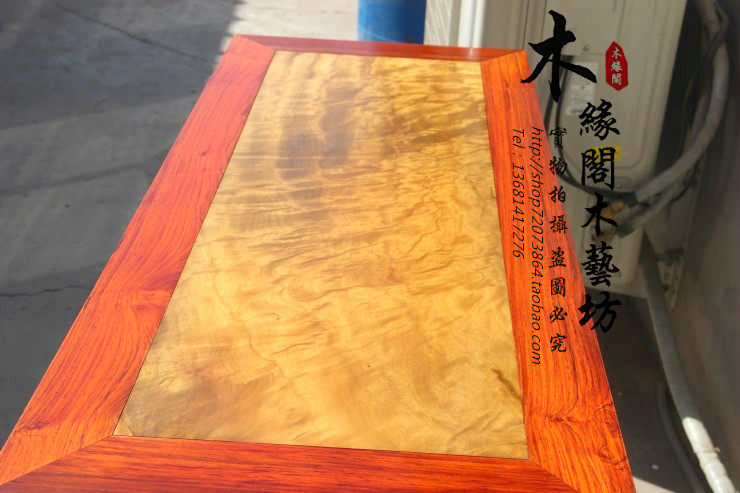 木緣閣木藝坊
木緣閣
實物拍攝盜圖必究
http://shop72073864.taobao.com
Tel：13681417276